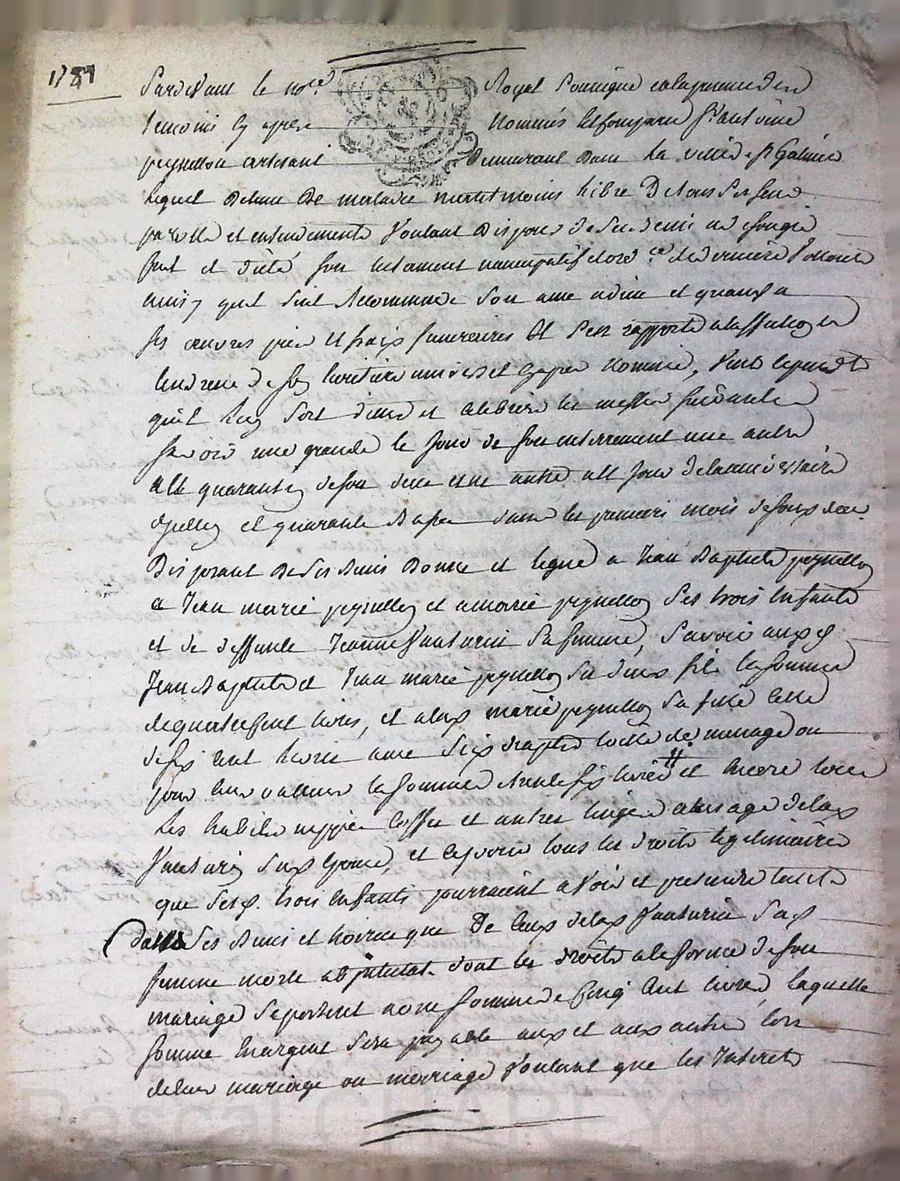 1789
Pardevant le no.re Royal Soussigné en la presence des
temoins cy apres Nommés
peyrellon artisant demeurant dans la ville de St Galmier
lequel detenu de maladie neantmoins libre de tous ses sens
parolle et entendement voulant disposer de ses biens
fait et dicté son testament nuncupatif et derniere volonté
ainsy quil suit Recommande son ame a dieu et quand a
ses œuvres pies et frais funeraires Il s'en rapporte a
de son heritiere cy apres Nommée, Veut cependant
quil soit dites et celebrées les messes suivantes
savoir une grande le jour de son enterrement une autre
a la quarantaine de son deces et une autre au jour de l'anniversaire
et quarante basses dans les premiers mois de son deces
Disposant de ses biens donne et legue a Jean Baptiste peyrellon
a Jean marie peyrellon et a marie peyrellon ses trois Enfants
et de deffunte Jeanne sa femme, Savoir auxd.
Jean Baptiste et Jean marie peyrellon ses deux fils la somme
de quatre cent livres, et a lad. marie peyrellon sa fille celle
de six cent livres avec six draps toille de menage ou
pour leur valleur la somme livres et encore tous
les habits nippes coffre et autres linges a l'usage de lad.
sad. epouse, et ce pour tous les droits legitimaires
que sesd. trois Enfants pourraient avoir et pretendre tant
dans ses biens et hoirie que de ceux de lad. sad.
femme morte dont les droits a la forme de son
mariage se portent a une somme de Cinq Cent livres, laquelle
somme En argent sera payable aux uns et aux autres lors
de leur mariage ou voulant que les Interets
Pascal CHAREYRON